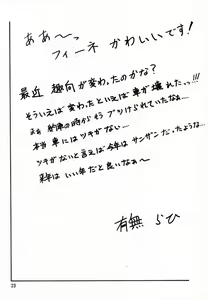 ああ〜っ
フィーネ かわいいです!
最近 趣向が変わったのかな?
そういえば 変わったといえば 車が壊れたっ!!!
まぁ 納車の時からもう ブツけられていたなぁ…
本当 車には ツキがない…
ツキがないと言えば 今年は サンザンだったような…
来年は いい年だと良いなぁ〜
有無 らひ
29